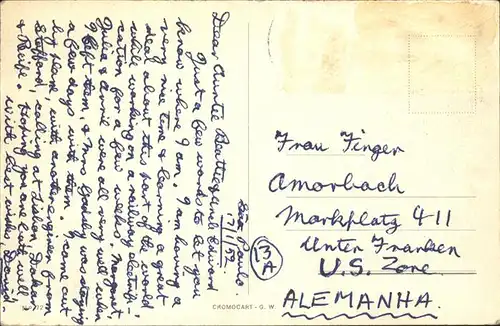 Sao Paulo.
17/1/52.
Dear Auntie Beattie & Uncle Edward
Just a few words to let you
know where I am. I am having a
very nice time & learning a great
deal about this part of the world
while working on a railway electrifi-
cation for a few weeks. Margaret,
Julia & Anne were all very well when
I left them, & Mrs Goodey was staying
a few days with them. I came out
by plane, with another engineer from
Stafford, calling at Lisbon, Dakar
& Recife. Hoping you are both well,
with best wishes,
Frau Finger
Amorbach
Markplatz 411
Unter Franken
U.S. Zone.
ALEMANHA.
13
A
CROMOCART - G. W.